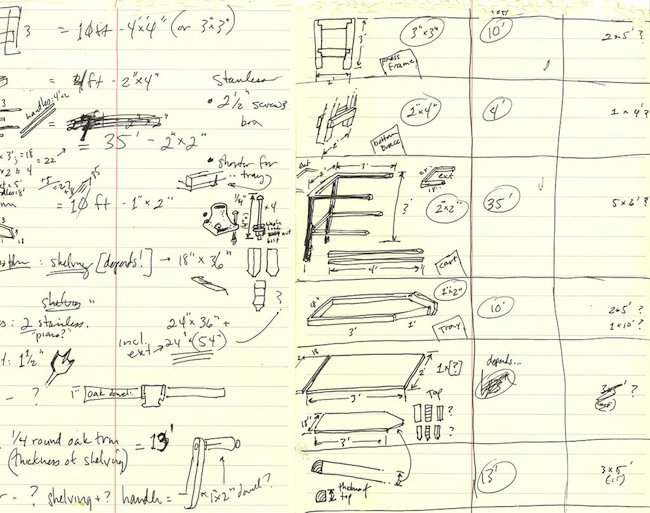 3 = 10 ft - 4"x4" (or 3"x3")
= 4 ft - 2"x4"
Stainless
• 2 1/2" screws
handles 4'x2
= 35' - 2"x2"
x 3', = 18
= 22
• shorter for tray
= 10 ft - 1"x2"
x 4
: shelving [depends!] → 18" x 36"
shelves"
: 2 stainless
"piano?"
24" x 36" +
incl. ext → 24" (54")
?
: 1 1/2"
- ?
1" oak dowel
1/4 round oak trm = 13'
(thickness of shelving)
- ? shelving + ? handle = 1"x2" dowel?
3'
2'
3"x3"
10'
2x5'?
press frame
2'
2"x4"
4'
1x4'?
bottom brace
ext
3'
ext
3'
2"x2"
35'
5x2'?
4'
cart
18"
3'
1'
1"x2"
10'
2x5'?
1x10'?
tray
18"
3'
2'
1x[?]
depends...
?
Top
?
?
18"
3'
thickness of top
13'
3x5'